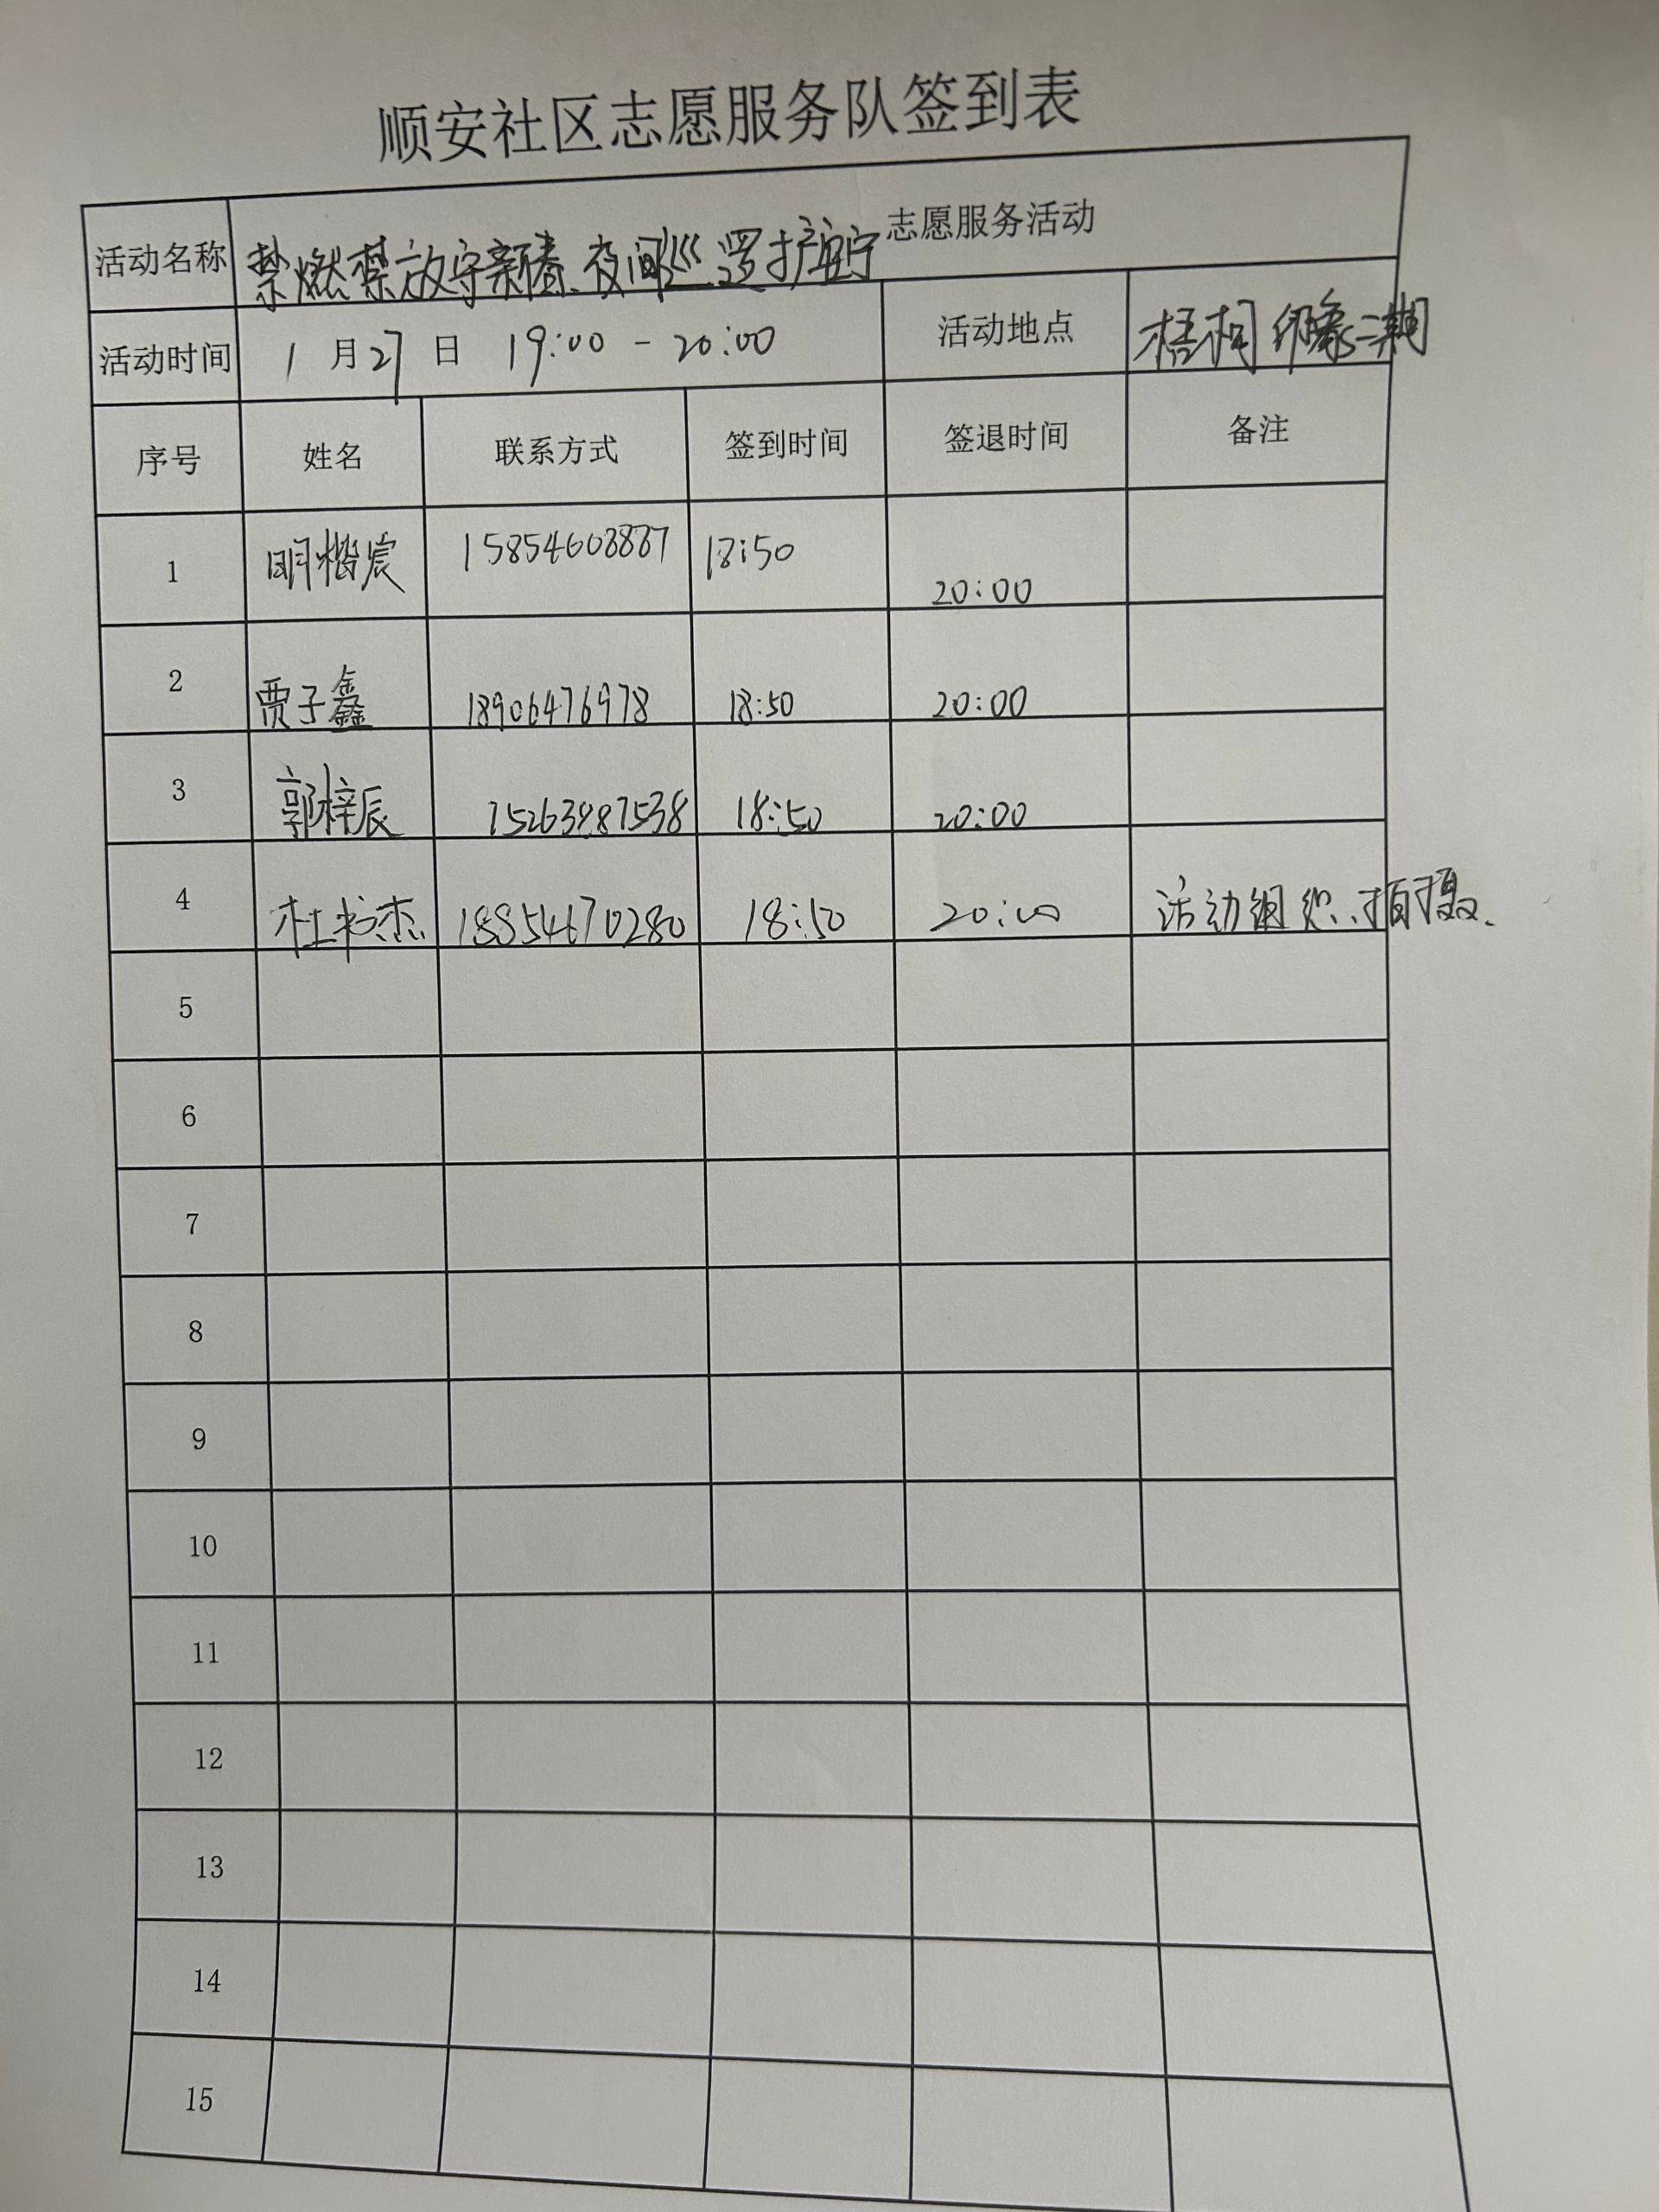 顺安社区志愿服务队签到表
活动名称 禁燃禁放守新春、夜间巡逻护安宁 志愿服务活动
活动时间 1月27日 19:00-20:00 活动地点 梧桐印象二期
序号 姓名 联系方式 签到时间 签退时间 备注
1 明楷宸 15854603887 18:50 20:00
2 贾子鑫 18906476978 18:50 20:00
3 郭梓辰 15263887538 18:50 20:00
4 杜书杰 18854670280 18:50 20:00 活动组织、拍摄、
5
6
7
8
9
10
11
12
13
14
15